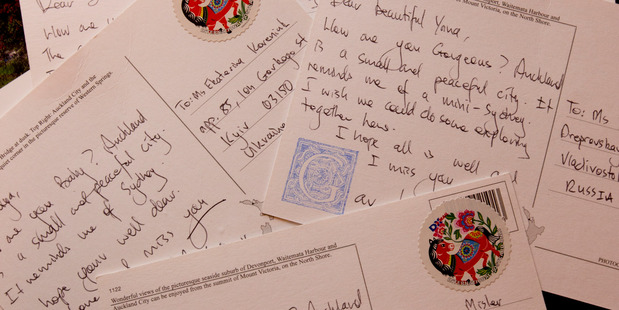 Dear
How are
The C
To: Ms Ekaterina
app. 85, 104
Kyiv 03150
Ukraine
Bridge at dusk. Top Right: Auckland City and the
quiet corner in the picturesque reserve of Western Springs.
are you Baby? Auckland
a small and peaceful city.
It reminds me of Sydney.
hope your well dear.
I miss you
of Devonport, Waitemata Harbour and
of Mount Victoria, on the North Shore.
Dear Beautiful Yana,
How are you Gorgeous? Auckland
is a small and peaceful city. It
reminds me of a mini-Sydney.
I wish we could do some exploring
together here.
I hope all is well
I miss you
G
To: Ms
Vladivostok
RUSSIA
PHOTOG
1122
Wonderful views of the picturesque seaside suburb of Devonport, Waitemata Harbour and
Auckland City can be enjoyed from the summit of Mount Victoria, on the North Shore.
Auckland